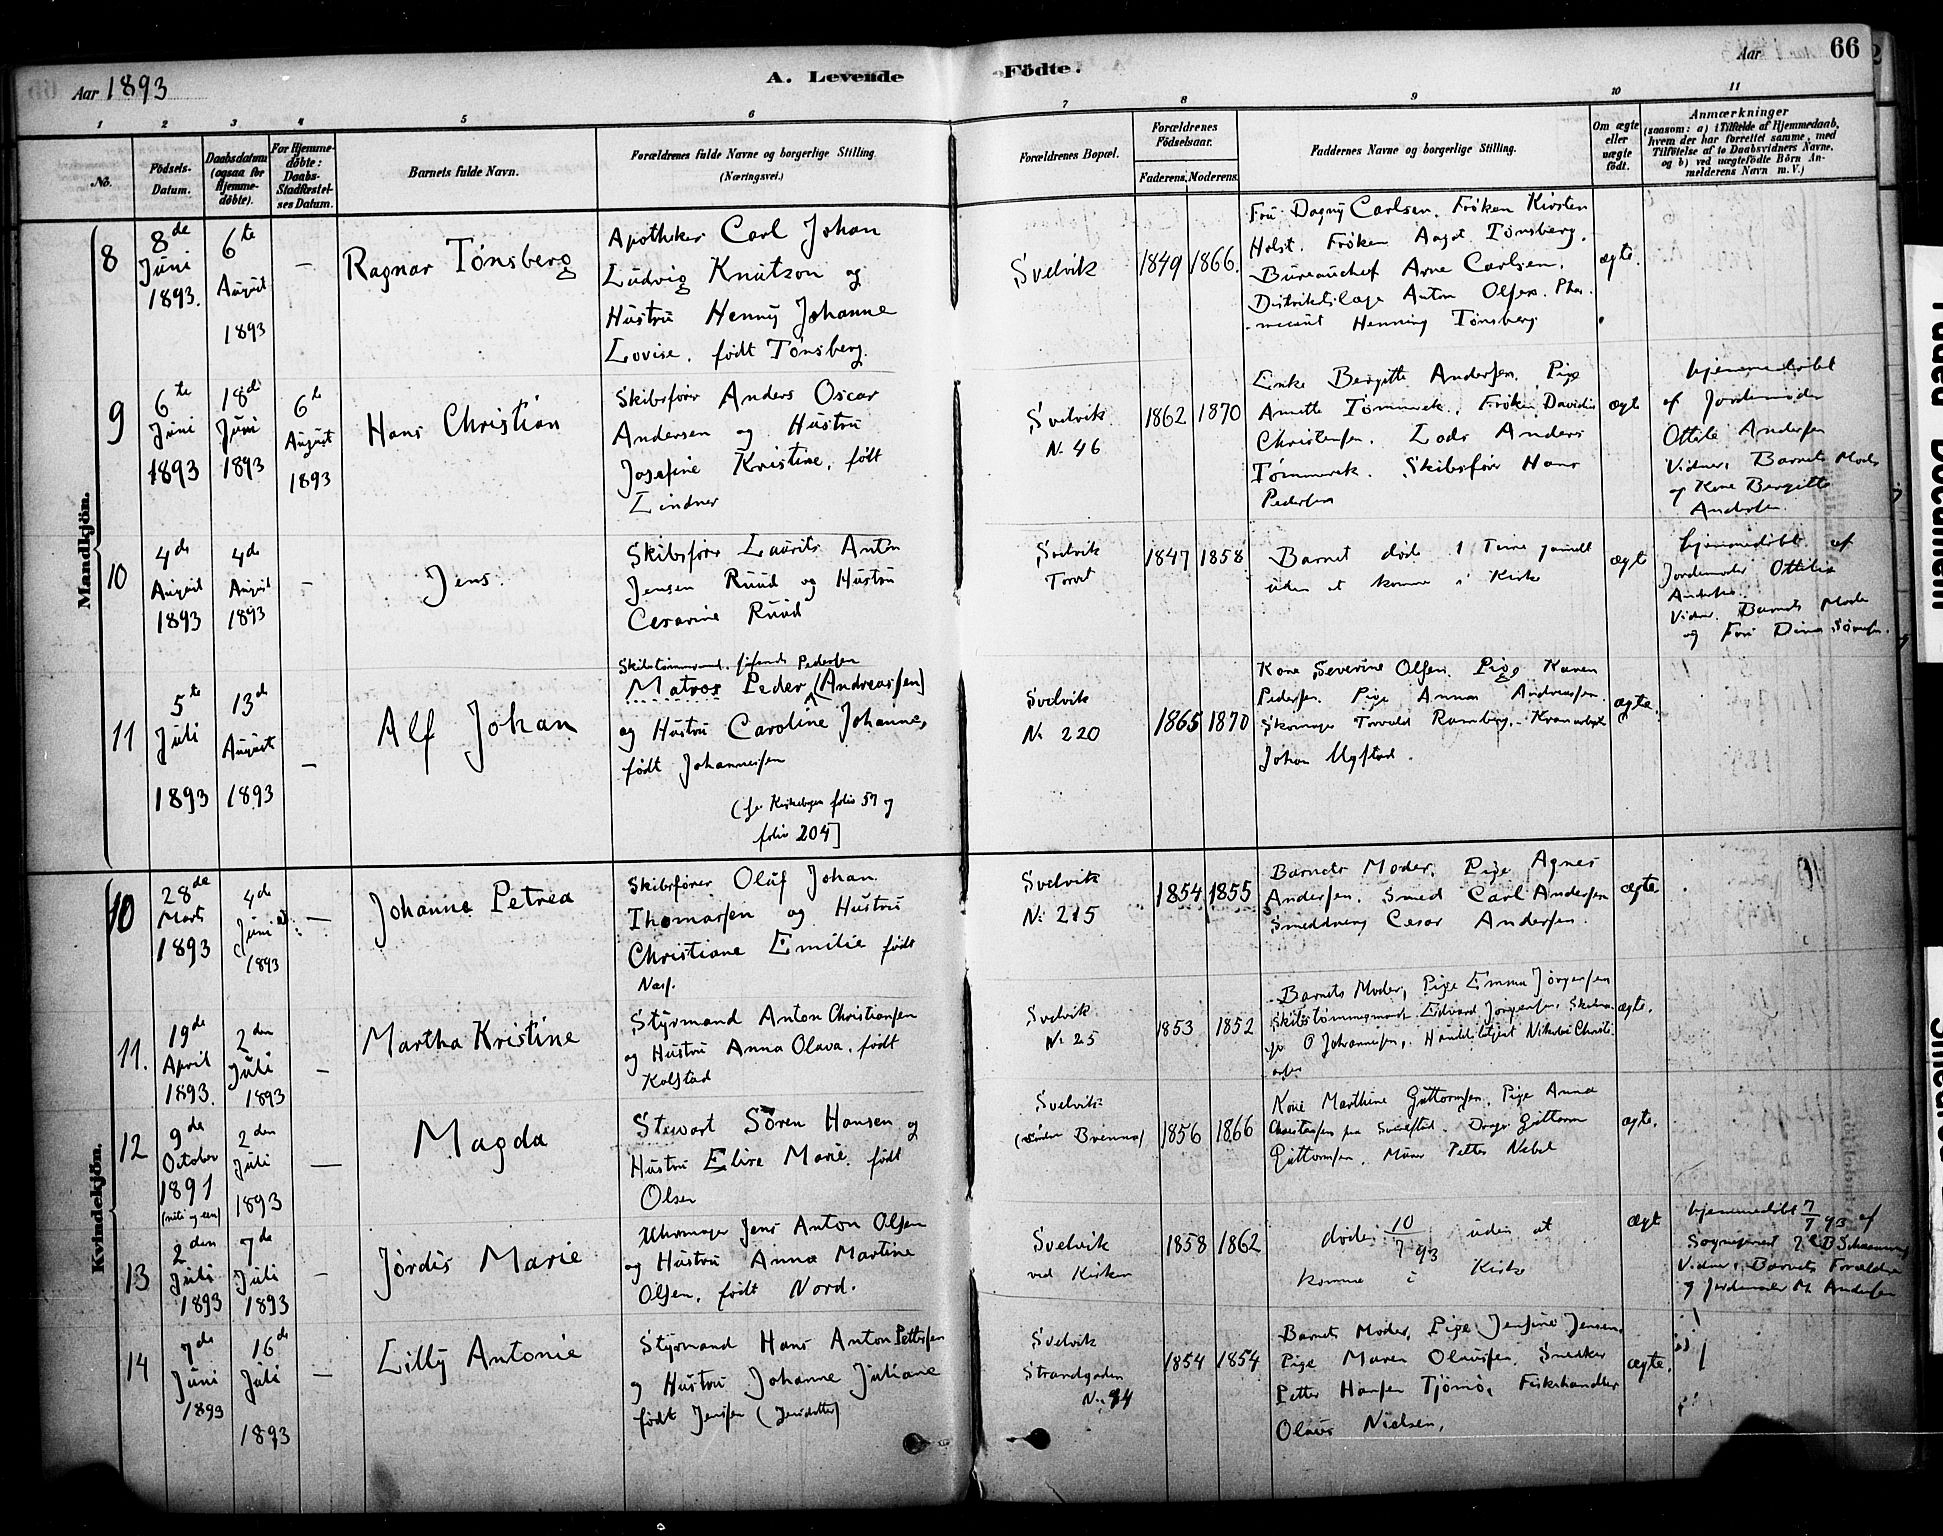 Aar 1893
A. Levende
Födte.
Aar 66
1 2 3 4 5 6 7 8 9 10 11
No.
Födsels-
Datum.
Daabsdatum
(ogsaa for
Hjemme-
döbte).
For Hjemme-
döbte:
Daabs-
Stadfæstel-
ses Datum.
Barnets fulde Navn.
Forældrenes fulde Navne og borgerlige Stilling
(Næringsvei.)
Forældrenes Bopæl.
Forældrenes
Födselsaar.
Faderens. Moderens.
Faddernes Navne og borgerlige Stilling.
Om ægte
eller
uægte
födt.
Anmærkninger
(saasom: a) i Tilfælde af Hjemmedaab,
hvem der har forrettet samme, med
Tilföielse af to Daabsvidners Navne,
og b) ved uægtefödte Börn An-
melderens Navn m. V.)
Mandkjön.
8
8de
Juni
1893.
6te
August
1893
–
Ragnar Tönsberg
Apotheker Carl Johan
Ludvig Knutzon og
Hustru Henny Johanne
Lovise, født Tönsberg.
Svelvik
1849 1866.
Fru Dagny Carlsen. Frøken Kirsten
Holst. Frøken Aagot Tönsberg.
Bureauchef Arne Carlsen.
Distriktslæge Anton Olsen. Phar-
maceut Henning Tönsberg
ægte.
9
6te
Juni
1893
18de
Juni
1893
6te
August
1893
Hans Christian
Skibsfører Anders Oscar
Andersen og Hustru
Josefine Kristine, født
Lindner
Svelvik
No 46
1862 1870
Enke Bergitte Andersen. Pige
Anette Tømmerek. Frøken Davida
Christensen. Lods Anders
Tømmerek. Skibsfører Hans
Pedersen
ægte
hjemmedøbt
af Jordemoder
Ottilie Andersen
Vidner, Barnets Moder
og Kone Bergitte
Andersen.
10
4de
August
1893
4de
August
1893
–
Jens.
Skibsfører Laurits Anton
Jensen Ruud og Hustru
Cesarine Ruud
Svelvik
Torvet
1847 1858
Barnet døde 1 Time gammelt
uden at komme i Kirke
ægte
hjemmedøbt af
Jordemoder Ottilie
Andersen.
Vidner. Barnets Moder
og Fru Dina
11
5te
Juli
1893
13de
August
1893
–
Alf Johan
Skibstømmermand, Pedersen
Matros Peder (Andreassen)
og Hustru Caroline Johanne,
født Johannessen
(se Kirkebogen folio 57 og
folio 204]
Svelvik
No 220
1865 1870
Kone Severine Olsen. Pige Karen
Pedersen. Pige Anna Andreassen
Skomager Torvald Ramberg.
Johan Mystad.
ægte.
Kvindekjön.
10
28de
Marts
1893
4de
Juni
1893
–
Johanne Petrea
Skibsfører Oluf Johan
Thomassen og Hustru
Christiane Emilie født
Næss.
Svelvik
No 215
1854 1855
Barnets Moder. Pige Agnes
Andersen. Smed Carl Andersen
Smeddreng Cesar Andersen.
ægte
11.
19de
April
1893.
2den
Juli
1893
–
Martha Kristine
Styrmand Anton Christiansen
og Hustru Anna Olava, født
Kolstad
Svelvik
No 25
1853 1852
Barnets Moder, Pige Emma Jörgensen
Skibstømmermand Edvard Jörgensen,
O Johannesen, Handelsbetjent Nikolai Christi-
ansen
ægte.
12
9de
October
1891
(nitti og een)
2den
Juli
1893
–
Magda
Stewart Sören Hansen og
Hustru Elise Marie. født
Olsen
Svelvik
(søndre Brenna)
1856 1866
Kone Marthine Guttormsen, Pige Anna
Christensen fra. Dreng Guttorm
Guttormsen. Murer Petter Nebel
ægte.
13
2den
Juli
1893
7de
Juli
1893
–
Jördis Marie
Uhrmager Jens Anton Olsen
og Hustru Anna Martine
Olsen, født Nord.
Svelvik
ved Kirken
1858 1862
døde 10/7 93 uden at
komme i Kirke
ægte
hjemmedøbt 7/7 93 af
Sogneprest Schanning
Vidner, Barnets Forældre
og Jordemoder M. Andersen
14
7de
Juni
1893
16de
Juli
1893
–
Lilly Antonie
Styrmand Hans Anton Pettersen
og Hustru Johanne Juliane
født Jenssen (Jensdatter)
Svelvik
Strandgaden
No 94
1854 1854
Barnets Moder, Pige Jensine Jensen.
Pige Maren Olaussen. Snedker
Petter Hansen Tjömö, Fiskehandler
Olaus Nielsen.
ægte.